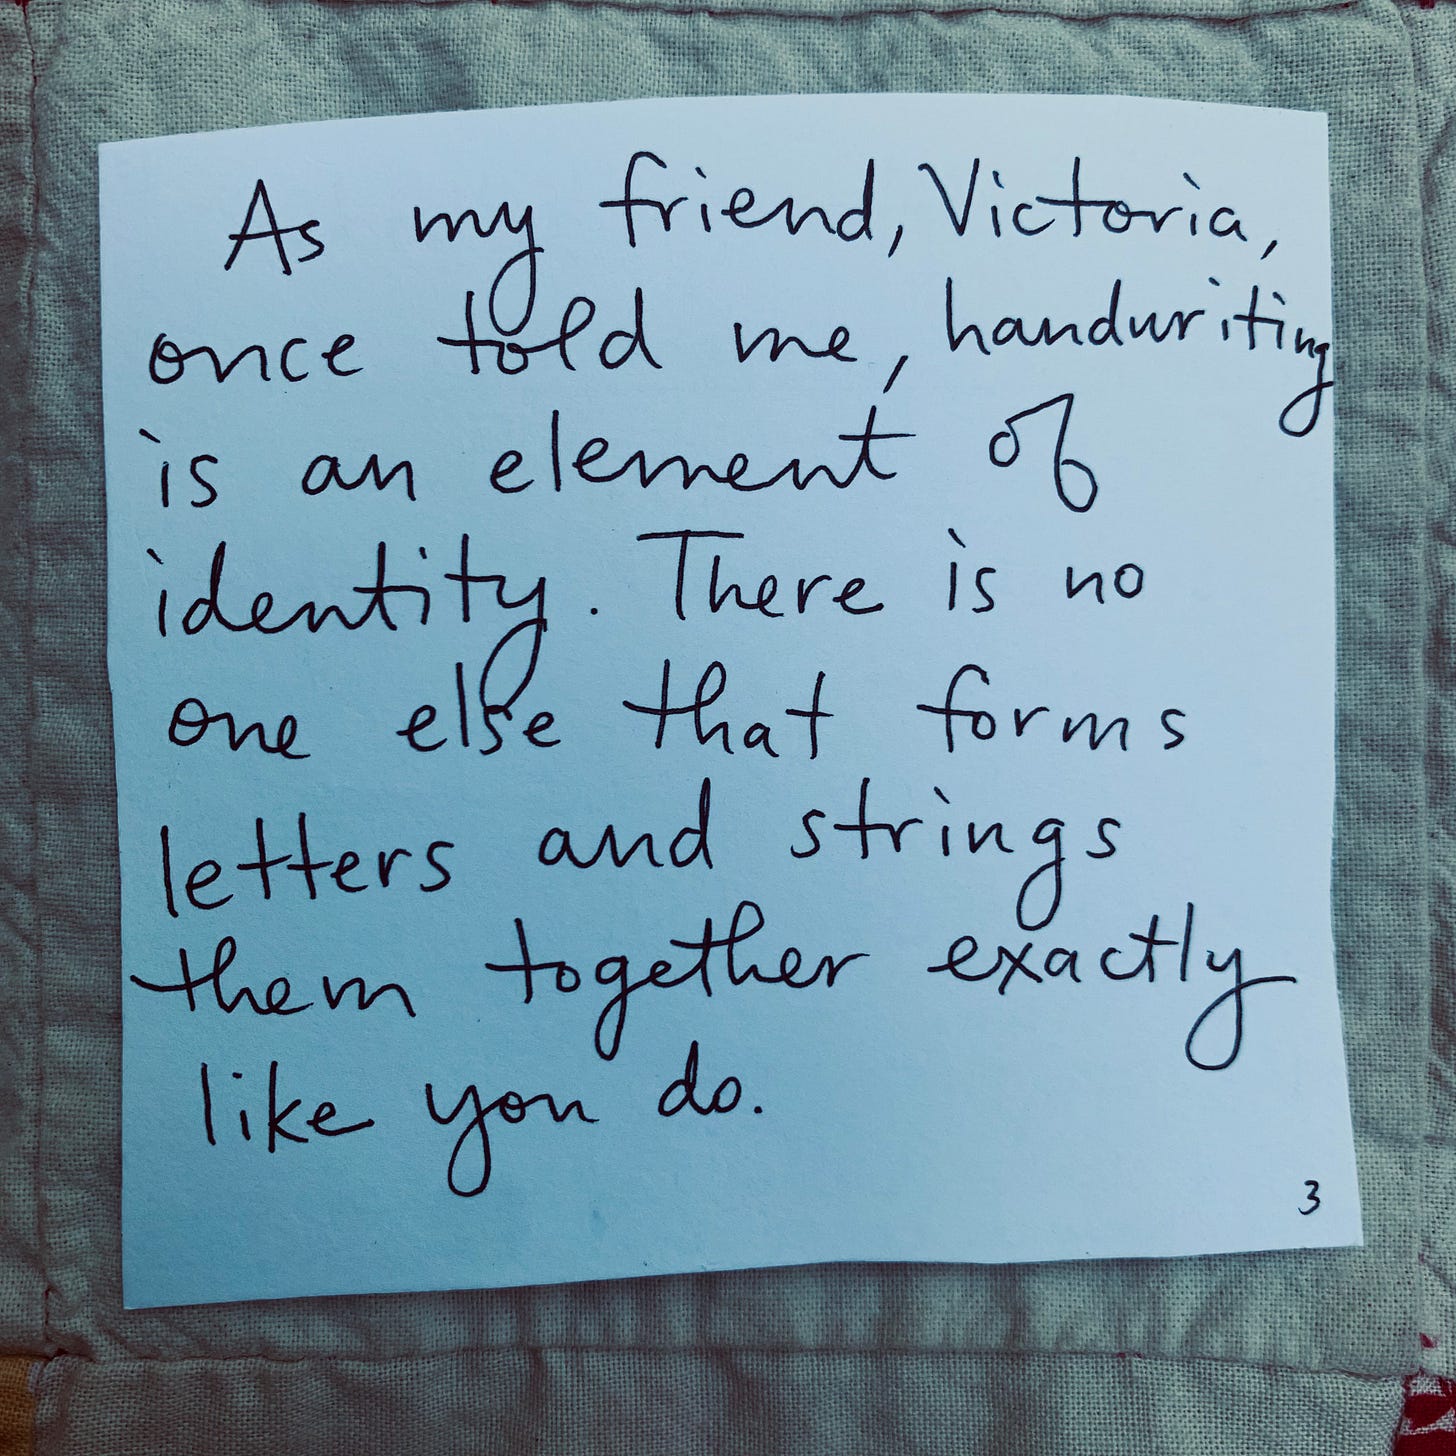 As my friend, Victoria,
once told me, handwriting
is an element of
identity. There is no
one else that forms
letters and strings
them together exactly
like you do.
3